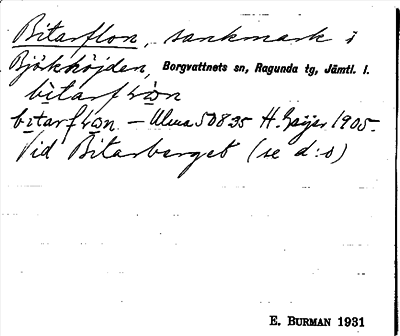 Bitarflon, sankmark i
Björkhöjden, Borgvattnets sn, Ragunda tg, Jämtl. l.
bìtarf
bitarf – Ulma 50835 H. Geijer 1905.
Vid Bitarberget (se d:o)
E. BURMAN 1931